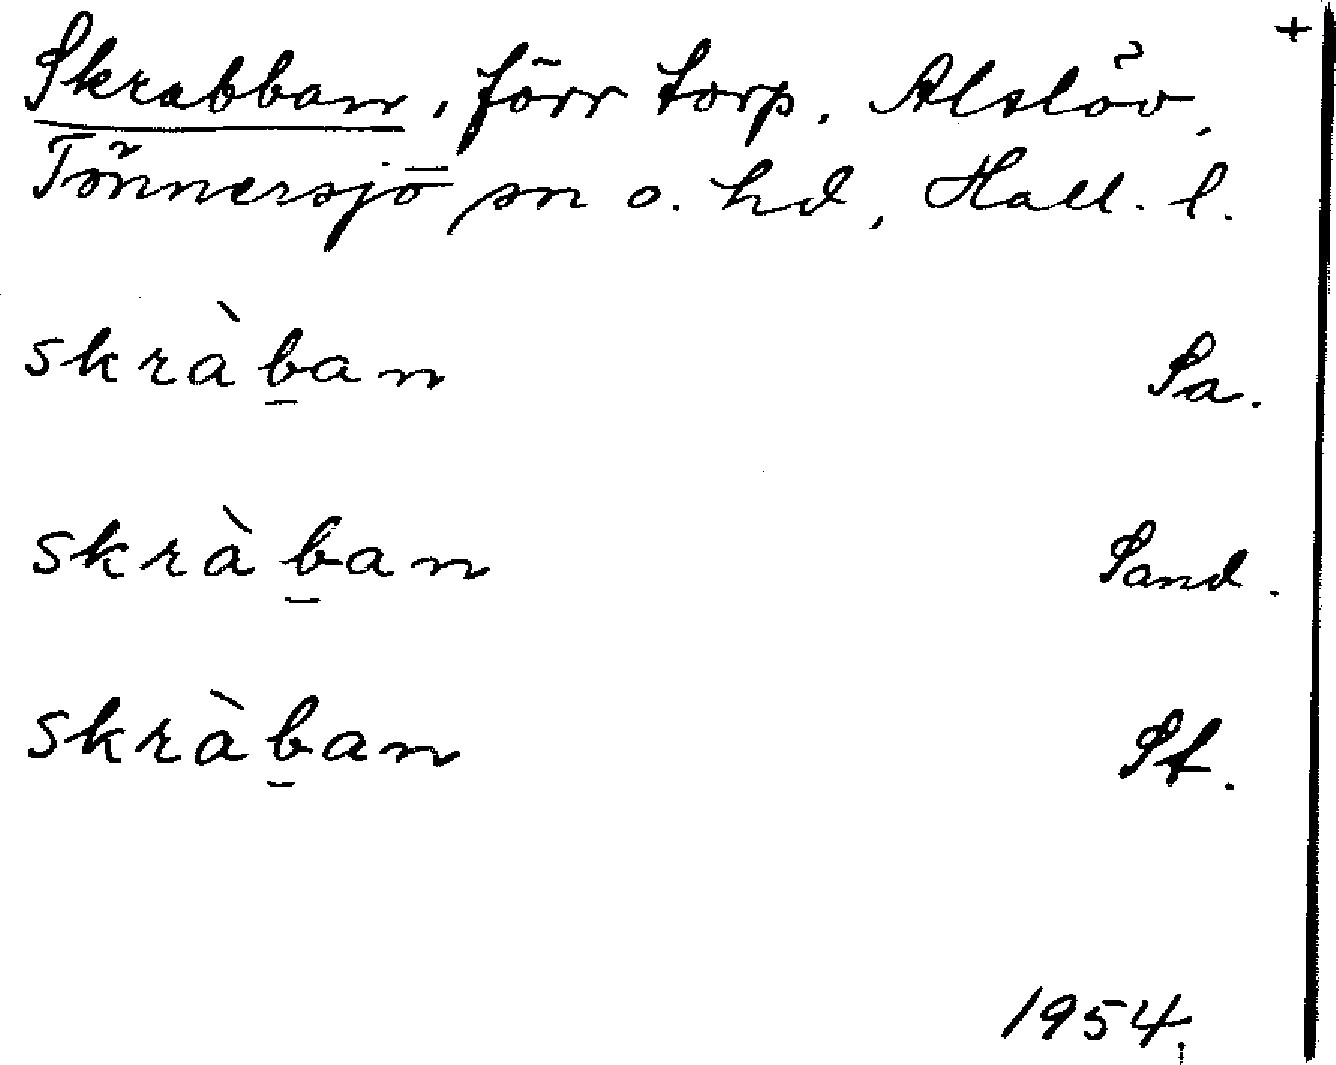 +
Skrabban, förr torp. Alslöv,
Tönnersjö sn o. hd, Hall. l.
skràb̲an Sa.
skràb̲an Sand.
skràb̲an St.
1954.